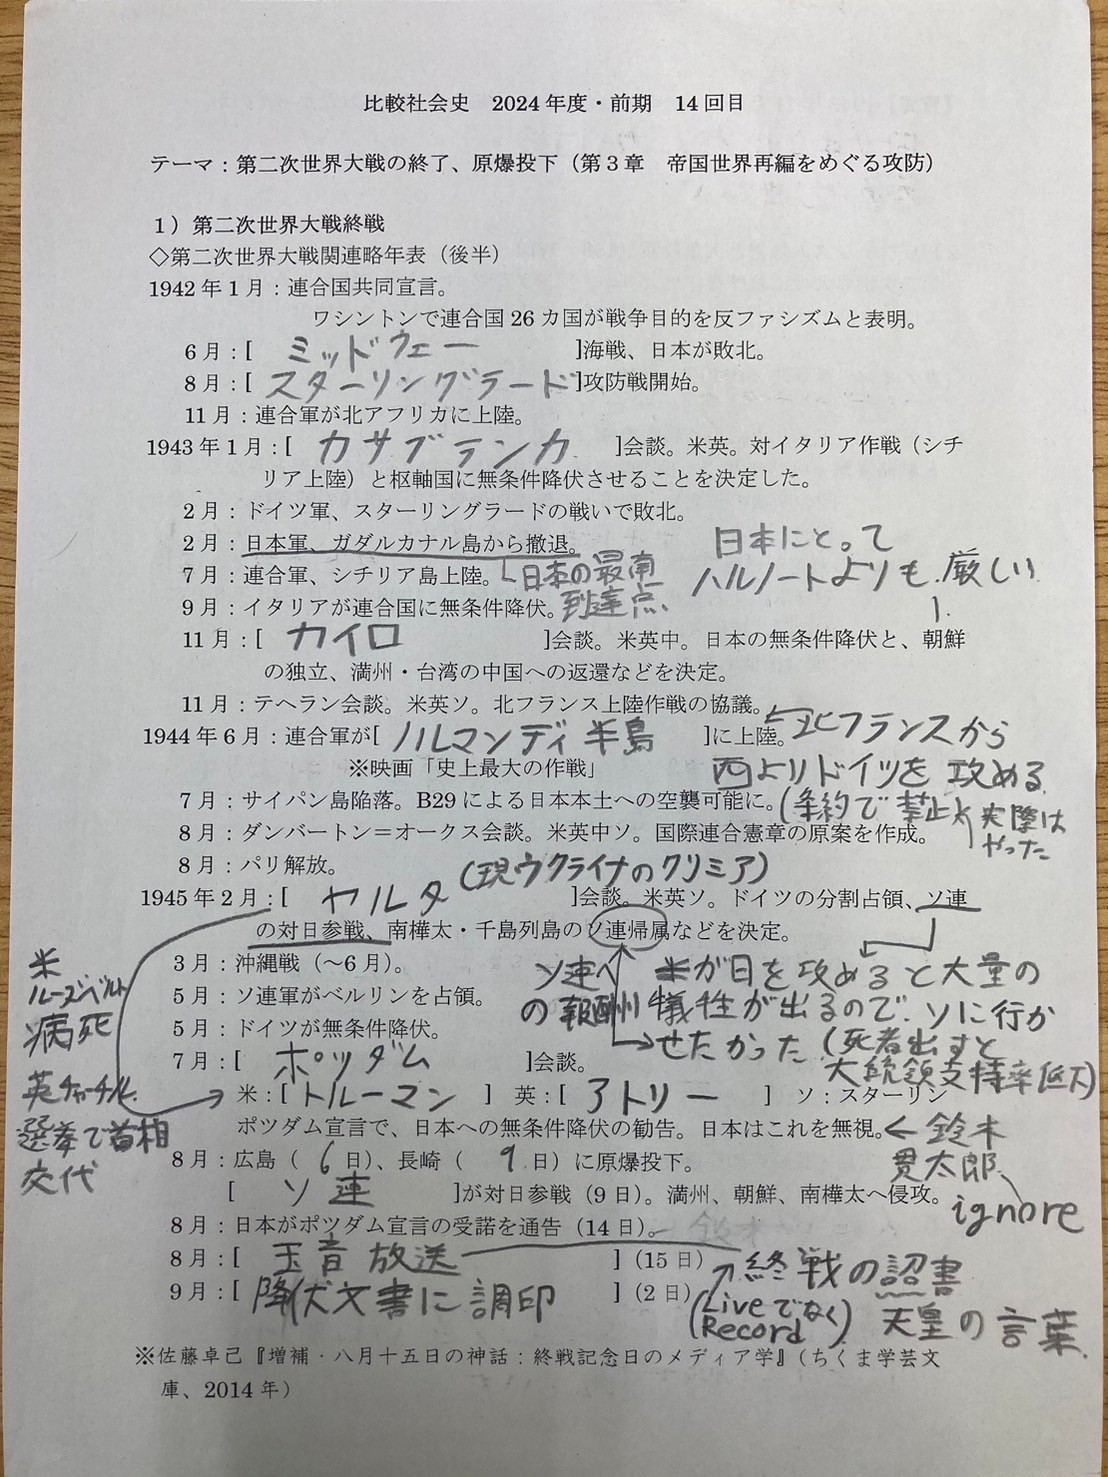 比較社会史　2024年度・前期　14回目
テーマ：第二次世界大戦の終了、原爆投下（第３章　帝国世界再編をめぐる攻防）
１）第二次世界大戦終戦
◇第二次世界大戦関連略年表（後半）
1942年1月：連合国共同宣言。
ワシントンで連合国26カ国が戦争目的を反ファシズムと表明。
6月：[ ミッドウェー ]海戦、日本が敗北。
8月：[ スターリングラード ]攻防戦開始。
11月：連合軍が北アフリカに上陸。
1943年1月：[ カサブランカ ]会談。米英。対イタリア作戦（シチ
リア上陸）と枢軸国に無条件降伏させることを決定した。
2月：ドイツ軍、スターリングラードの戦いで敗北。
2月：日本軍、ガダルカナル島から撤退。
日本の最南
到達点
7月：連合軍、シチリア島上陸。
9月：イタリアが連合国に無条件降伏。
日本にとって
ハルノートよりも厳しい
11月：[ カイロ ]会談。米英中。日本の無条件降伏と、朝鮮
の独立、満州・台湾の中国への返還などを決定。
11月：テヘラン会談。米英ソ。北フランス上陸作戦の協議。
1944年6月：連合軍が[ ノルマンディ半島 ]に上陸。
北フランスから
西よりドイツを攻める
※映画「史上最大の作戦」
7月：サイパン島陥落。B29による日本本土への空襲可能に。
(条約で禁止 実際は
やった
8月：ダンバートン＝オークス会談。米英中ソ。国際連合憲章の原案を作成。
8月：パリ解放。
(現ウクライナのクリミア)
1945年2月：[ ヤルタ ]会談。米英ソ。ドイツの分割占領、ソ連
の対日参戦、南樺太・千島列島のソ連帰属などを決定。
ソ連へ
の報酬
米が日を攻めると大量の
犠牲が出るので、ソに行か
せたかった (死者出すと
大統領支持率低下)
3月：沖縄戦（～6月）。
5月：ソ連軍がベルリンを占領。
5月：ドイツが無条件降伏。
7月：[ ポツダム ]会談。
米
ルーズベルト
病死
英チャーチル
選挙で首相
交代
米：[ トルーマン ]　英：[ アトリー ]　ソ：スターリン
ポツダム宣言で、日本への無条件降伏の勧告。日本はこれを無視。
←鈴木
貫太郎
ignore
8月：広島（ 6 日）、長崎（ 9 日）に原爆投下。
[ ソ連 ]が対日参戦（9日）。満州、朝鮮、南樺太へ侵攻。
8月：日本がポツダム宣言の受諾を通告（14日）。
8月：[ 玉音放送 ]（15日）
終戦の詔書
(Liveでなく
Record)
天皇の言葉
9月：[ 降伏文書に調印 ]（2日）
※佐藤卓己『増補・八月十五日の神話：終戦記念日のメディア学』（ちくま学芸文
庫、2014年）